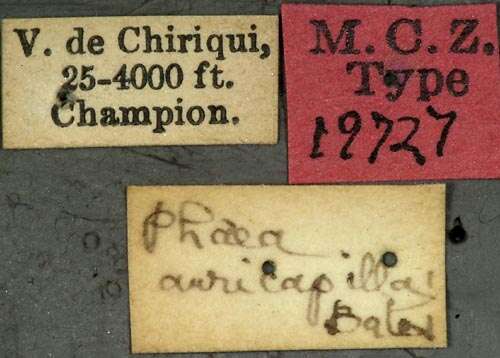 V. de Chiriqui,
25-4000 ft.
Champion.
M. C. Z.
Type
19727
Phaea
auricapilla
Bates